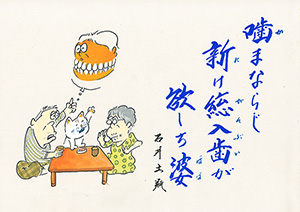 噛まならじ
新け総入歯が
欲しち婆
石井